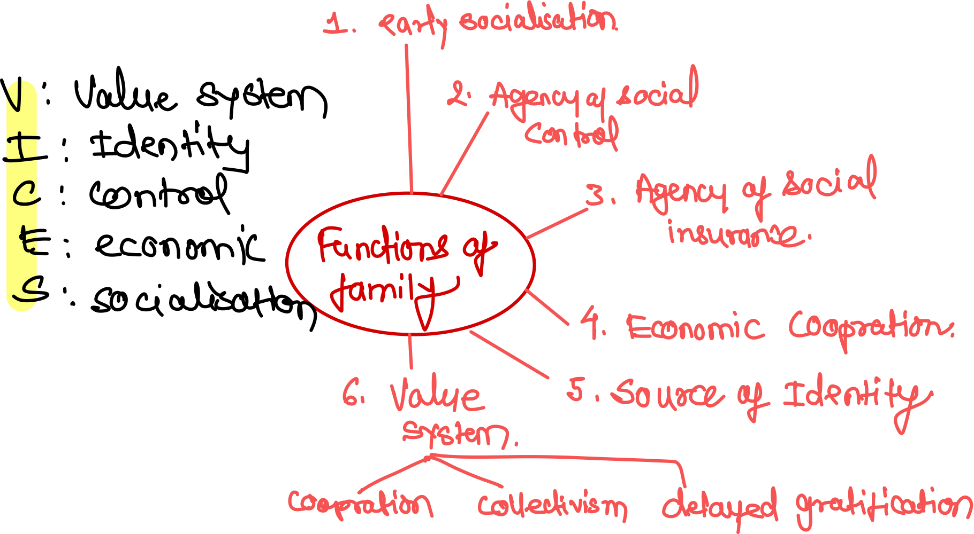 1. early socialisation
V : Value system
I : Identity
C : control
E : economic
S : socialisation
Functions of
family
2. Agency of social
control
3. Agency of social
insurance.
4. Economic Coopration.
5. Source of Identity.
6. Value
system.
coopration collectivism delayed gratification